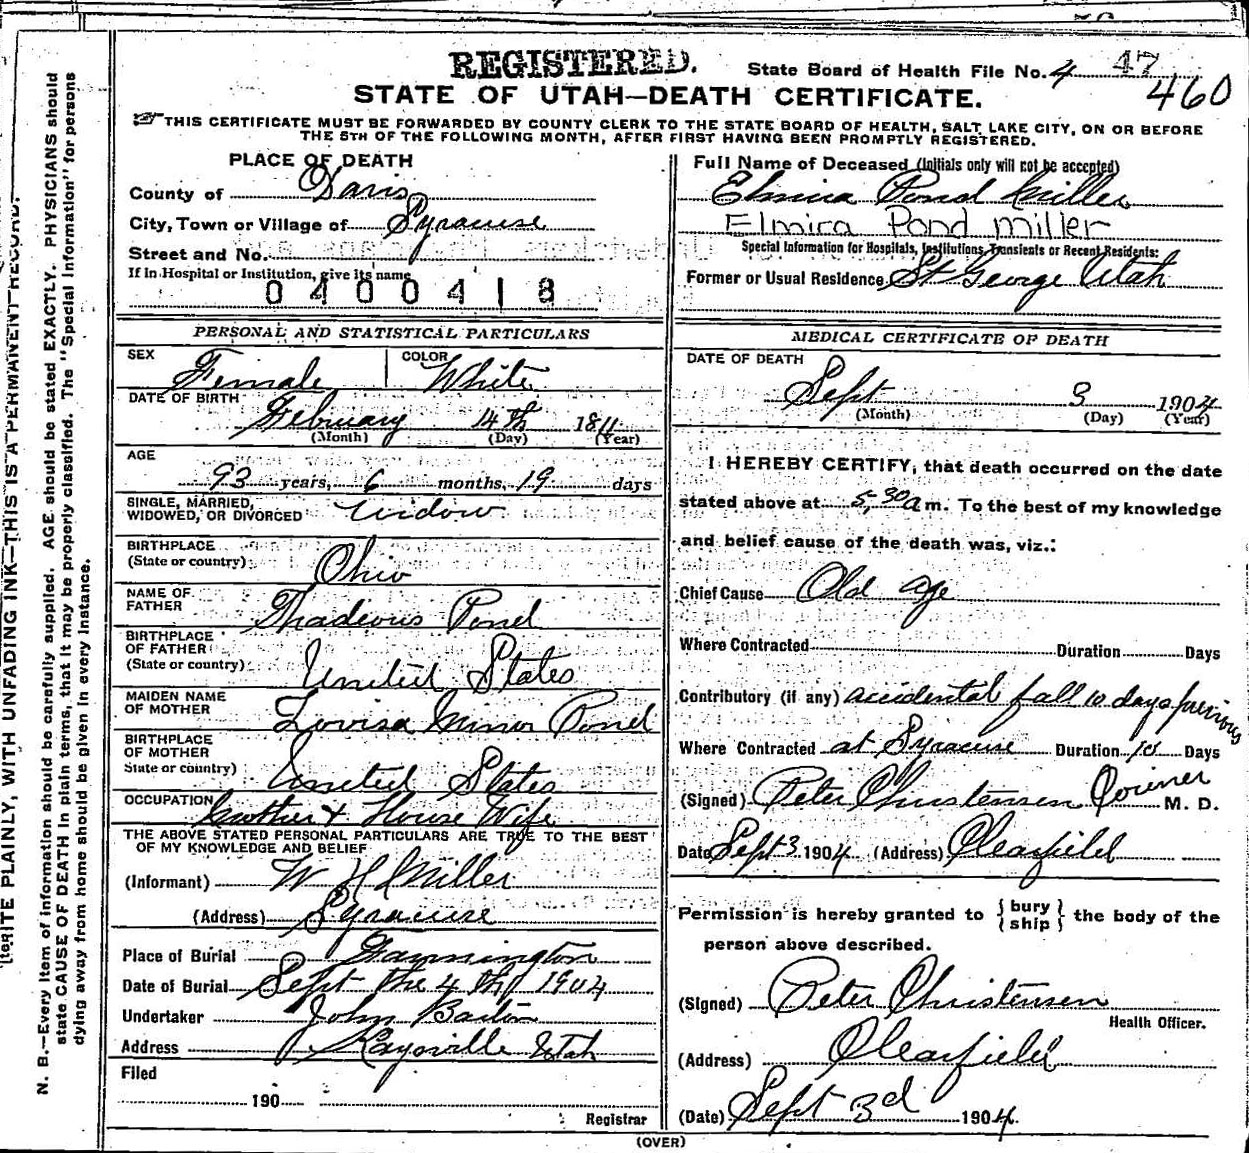 REGISTERED.
State Board of Health File No. 4 47
460
STATE OF UTAH—DEATH CERTIFICATE.
THIS CERTIFICATE MUST BE FORWARDED BY COUNTY CLERK TO THE STATE BOARD OF HEALTH, SALT LAKE CITY, ON OR BEFORE
THE 5TH OF THE FOLLOWING MONTH, AFTER FIRST HAVING BEEN PROMPTLY REGISTERED.
PLACE OF DEATH
County of Davis
City, Town or Village of Syracuse
Street and No.
If in Hospital or Institution, give its name
0400418
Full Name of Deceased (Initials only will not be accepted)
Elmira Pond Miller
Elmira Pond Miller
Special Information for Hospitals, Institutions, Transients or Recent Residents:
Former or Usual Residence St George Utah
PERSONAL AND STATISTICAL PARTICULARS
SEX Female COLOR White
DATE OF BIRTH
February 14th 1811
(Month) (Day) (Year)
AGE
93 years, 6 months, 19 days
SINGLE, MARRIED,
WIDOWED, OR DIVORCED Widow
BIRTHPLACE
(State or country) Ohio
NAME OF
FATHER Thadeous Pond
BIRTHPLACE
OF FATHER
(State or country) United States
MAIDEN NAME
OF MOTHER Lovisa Minor Pond
BIRTHPLACE
OF MOTHER
State or country) United States
OCCUPATION House Wife
THE ABOVE STATED PERSONAL PARTICULARS ARE TRUE TO THE BEST
OF MY KNOWLEDGE AND BELIEF
(Informant) W H Miller
(Address) Syracuse
Place of Burial Farmington
Date of Burial Sept the 4 th 1904
Undertaker John Barton
Address Kaysville Utah
Filed
190
Registrar
MEDICAL CERTIFICATE OF DEATH
DATE OF DEATH
Sept 3 1904
(Month) (Day) (Year)
I HEREBY CERTIFY, that death occurred on the date
stated above at 5,30 a m. To the best of my knowledge
and belief cause of the death was, viz.:
Chief Cause Old age
Where Contracted Duration Days
Contributory (if any) accidental fall 10 days previous
Where Contracted at Syracuse Duration 10 Days
(Signed) Peter Christensen M. D.
Date Sept 3 1904 (Address) Clearfield
Permission is hereby granted to {bury
ship} the body of the
person above described.
(Signed) Peter Christensen
Health Officer.
(Address) Clearfield
(Date) Sept 3d 1904.
(OVER)
N. B.—Every item of information should be carefully supplied. AGE should be stated EXACTLY. PHYSICIANS should
state CAUSE OF DEATH in plain terms, that it may be properly classified. The "Special Information" for persons
dying away from home should be given in every instance.
RITE PLAINLY, WITH UNFADING INK—THIS IS A PERMANENT RECORD.